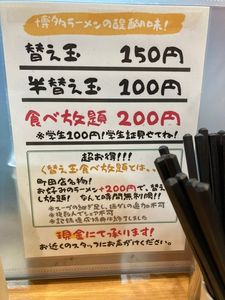 博多ラーメンの醍醐味!
替え玉 150円
半替え玉 100円
食べ放題 200円
※学生100円!学生証見せてね!
超お得!!!
く替え玉食べ放題とは、、
町田店名物!
お好みのラーメン+200円で、替え玉
し放題! なんと時間無制限!!
※スープの継ぎ足し、塩ダレの追加不可
※複数人でシェア不可
※記録達成特典は終了しました
現金にて承ります!
お近くのスタッフにお声がけください。